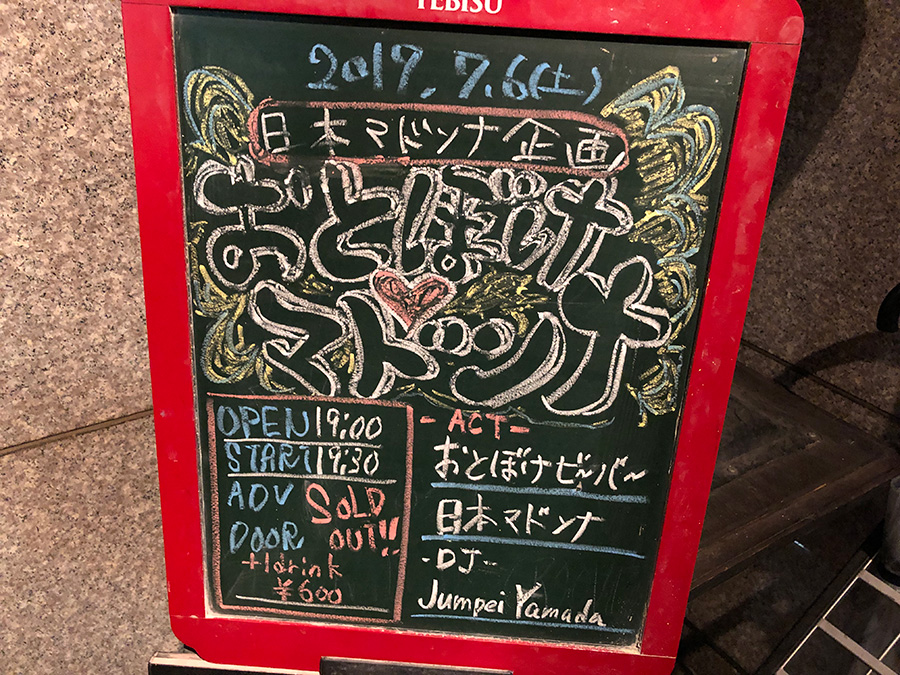 YEBISU
2019.7.6(土)
日本マドンナ企画
おとぼけ
マドンナ
OPEN 19:00
START 19:30
ADV SOLD
DOOR OUT!!
+1drink
¥600
-ACT-
おとぼけビ〜バ〜
日本マドンナ
-DJ-
Jumpei Yamada